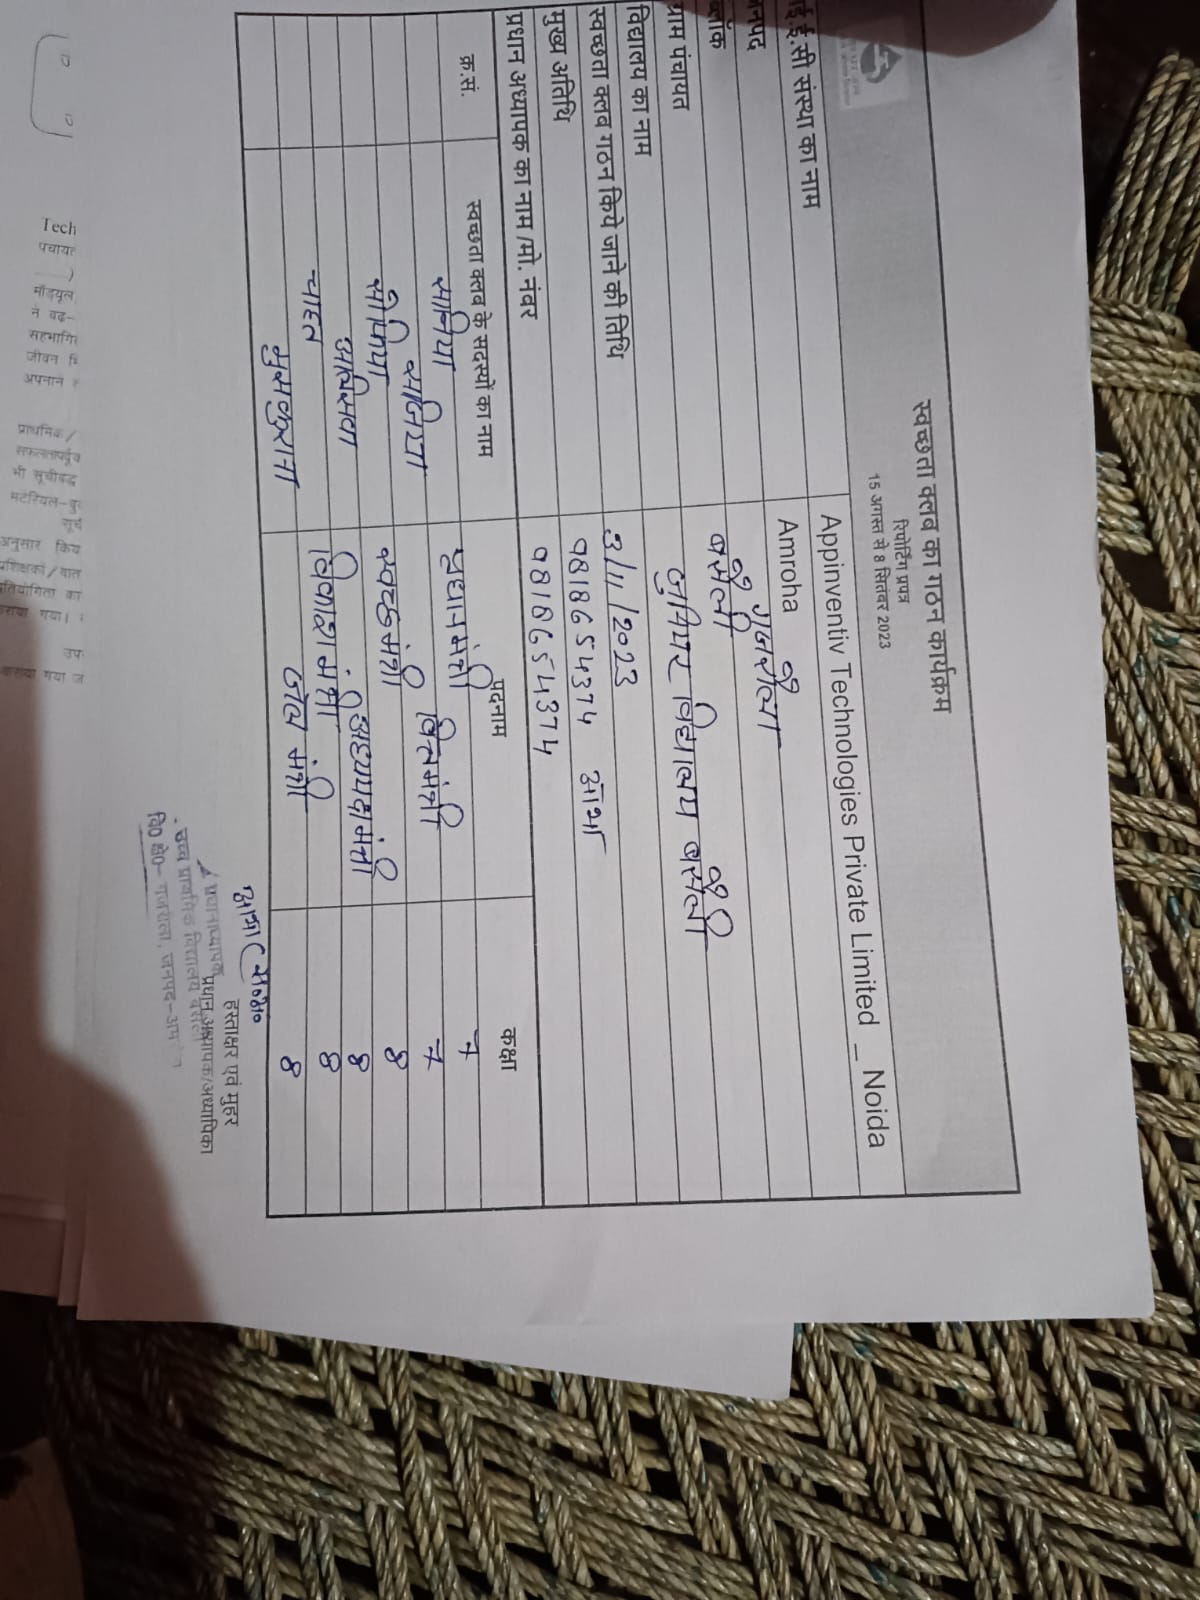 स्वच्छता क्लब का गठन कार्यक्रम
रिपोर्टिंग प्रपत्र
15 अगस्त से 8 सितंबर 2023
ई.ई.सी संस्था का नाम Appinventiv Technologies Private Limited _ Noida
जनपद Amroha
ब्लॉक गजरौला
ग्राम पंचायत बसैली
विद्यालय का नाम जुनियर विद्यालय बसैली
स्वच्छता क्लब गठन किये जाने की तिथि 3/11/2023
मुख्य अतिथि 9818654374 आभा
प्रधान अध्यापक का नाम /मो. नंबर 9818654374
क्र.सं. स्वच्छता क्लब के सदस्यों का नाम पदनाम कक्षा
सानिया प्रधानमंत्री 7
सानिया वित्तमंत्री 7
सोफिया स्वच्छ मंत्री 8
स्वास्थ्य मंत्री 8
चाहत विकाश मंत्री 8
मुसकुराना जल मंत्री 8
आभा
हस्ताक्षर एवं मुहर
प्रधान अध्यापक/अध्यापिका
प्रधानाध्यापक
उच्च प्राथमिक विद्यालय बसैली
वि० क्षे०- गजरौला, जनपद-
Tech
पंचायत
मॉड्यूल,
ने बढ़-
सहभागि
जीवन
अपनाने
प्राथमिक/
सफलतापूर्वक
भी सूचीबद्ध
मटेरियल-
अनुसार किय
प्रशिक्षकों/
प्रतियोगिता का
कराया गया।
उप
कराया गया